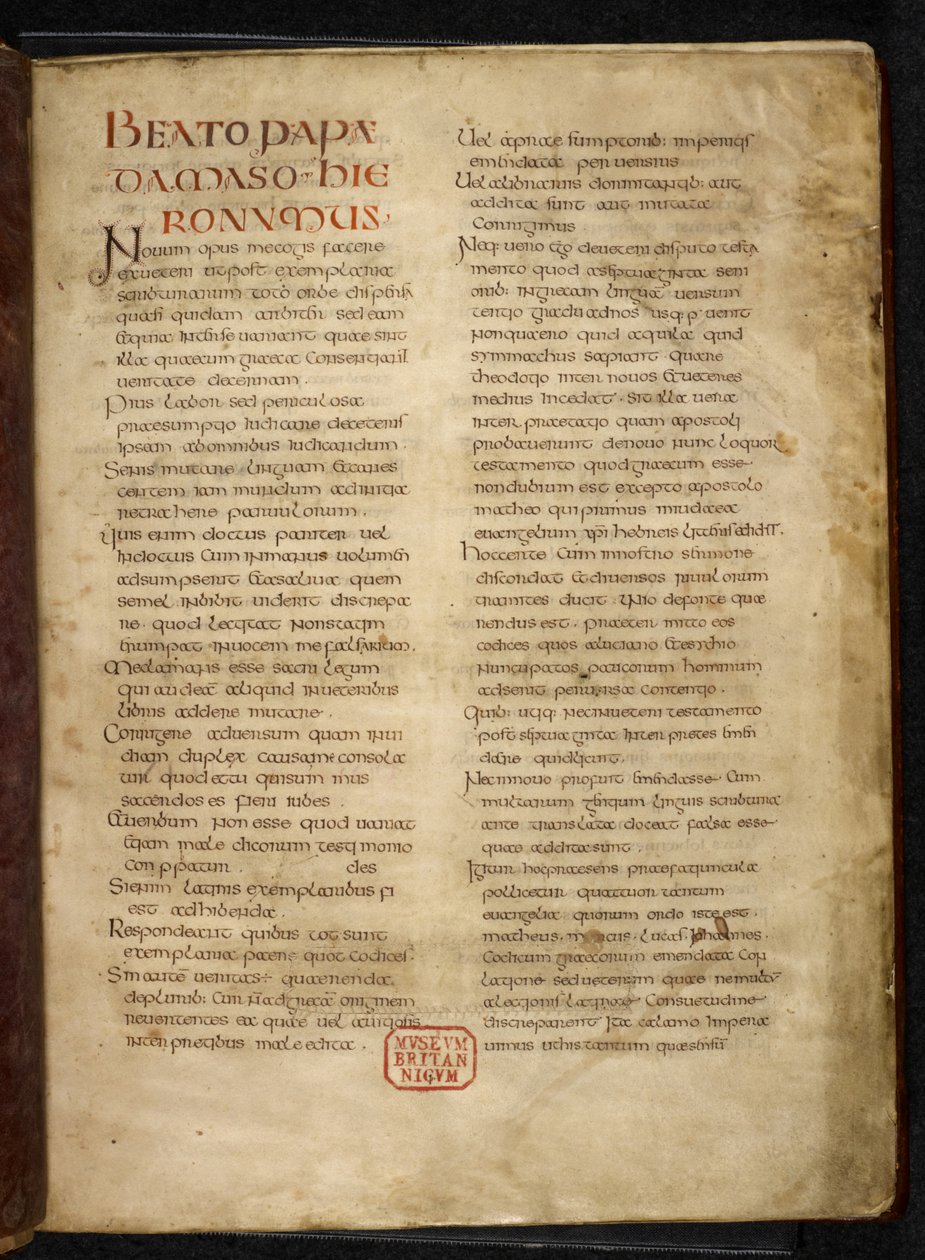 BEATO PAPAE
DAMASO HIE
RONYMUS
Nouum opus me cogis facere
ex ueteri ut post exemplaria
scribturarum toto orbe dispersa
quasi quidam arbiter sedeam
et quia inter se uariant quae sint
illa quae cum graeca consentiant
ueritate decernam .
Pius labor sed periculosa
praesumptio iudicare de ceteris
ipsam ab omnibus iudicandum .
Senis mutare linguam et canes
centem iam mundum ad initia
retrahere paruulorum .
Quis enim doctus pariter uel
indoctus cum in manus uolumen
adsumpserit et a saliua quem
semel inbibit uiderit discrepa
re . quod lectitat non statim
erumpat in uocem me falsarium .
Me clamans esse sacrilegum
qui audeam aliquid in ueteribus
libris addere mutare .
Corrigere aduersum quam inui
diam duplex causa me consola
tur quod et tu qui summus
sacerdos es fieri iubes .
Et uerum non esse quod uariat
etiam maledicorum testimonio
conppatur . des
Si enim latinis exemplaribus fi
est adhibenda .
Respondeant quibus tot sunt
exemplaria paene quot codices .
Sin autem ueritas ÷ quaerenda
de plurib: cur non ad grecam originem
reuertentes ea quae uel a uitiosis
interpretibus male edita .
Uel a praesumptorib: imperitis
emendata peruersius
Uel a librariis dormitantib: aut
addita sunt aut mutata
Corrigimus .
Neq: uero ego de ueteri disputo testa
mento quod a septuaginta seni
orib: in grecam linguam uersum
tertio gradu ad nos usq: peruenit
Non quaero quid aquila quid
symmachus sapiant quare
theodotio inter nouos et ueteres
medius incedat . Sit illa uera
interpraetatio quam apostoli
probauerunt de nouo nunc loquor
testamento quod graecum esse
non dubium est excepto apostolo
matheo qui primus in iudaea
euangelium xpi hebreis litteris edidit .
Hoc certe cum in nostro sermone
discordat et diuersos riuulorum
tramites ducit . Uno de fonte quae
rendus est . praetermitto eos
codices quos a luciano et esychio
nuncupatos paucorum hominum
adserit peruersa contentio .
Quib: utiq: nec in ueteri testamento
post septuaginta interpretes emen
dare quid licuit .
Nec in nouo profuit emendasse Cum
multarum gentium linguis scribtura
ante translata doceat falsa esse
quae addita sunt .
Igitur hoc praesens praefatiuncula
pollicetur quattuor tantum
euangelia quorum ordo iste est .
matheus . marcus . lucas . Iohannes .
Codicum graecorum emendata con
latione sed ueterum quae ne multum
a lectionis latinae Consuetudine
discreparent Ita calamo Impera
uimus ut his tantum quae sensum
MVSEVM
BRITAN
NICVM